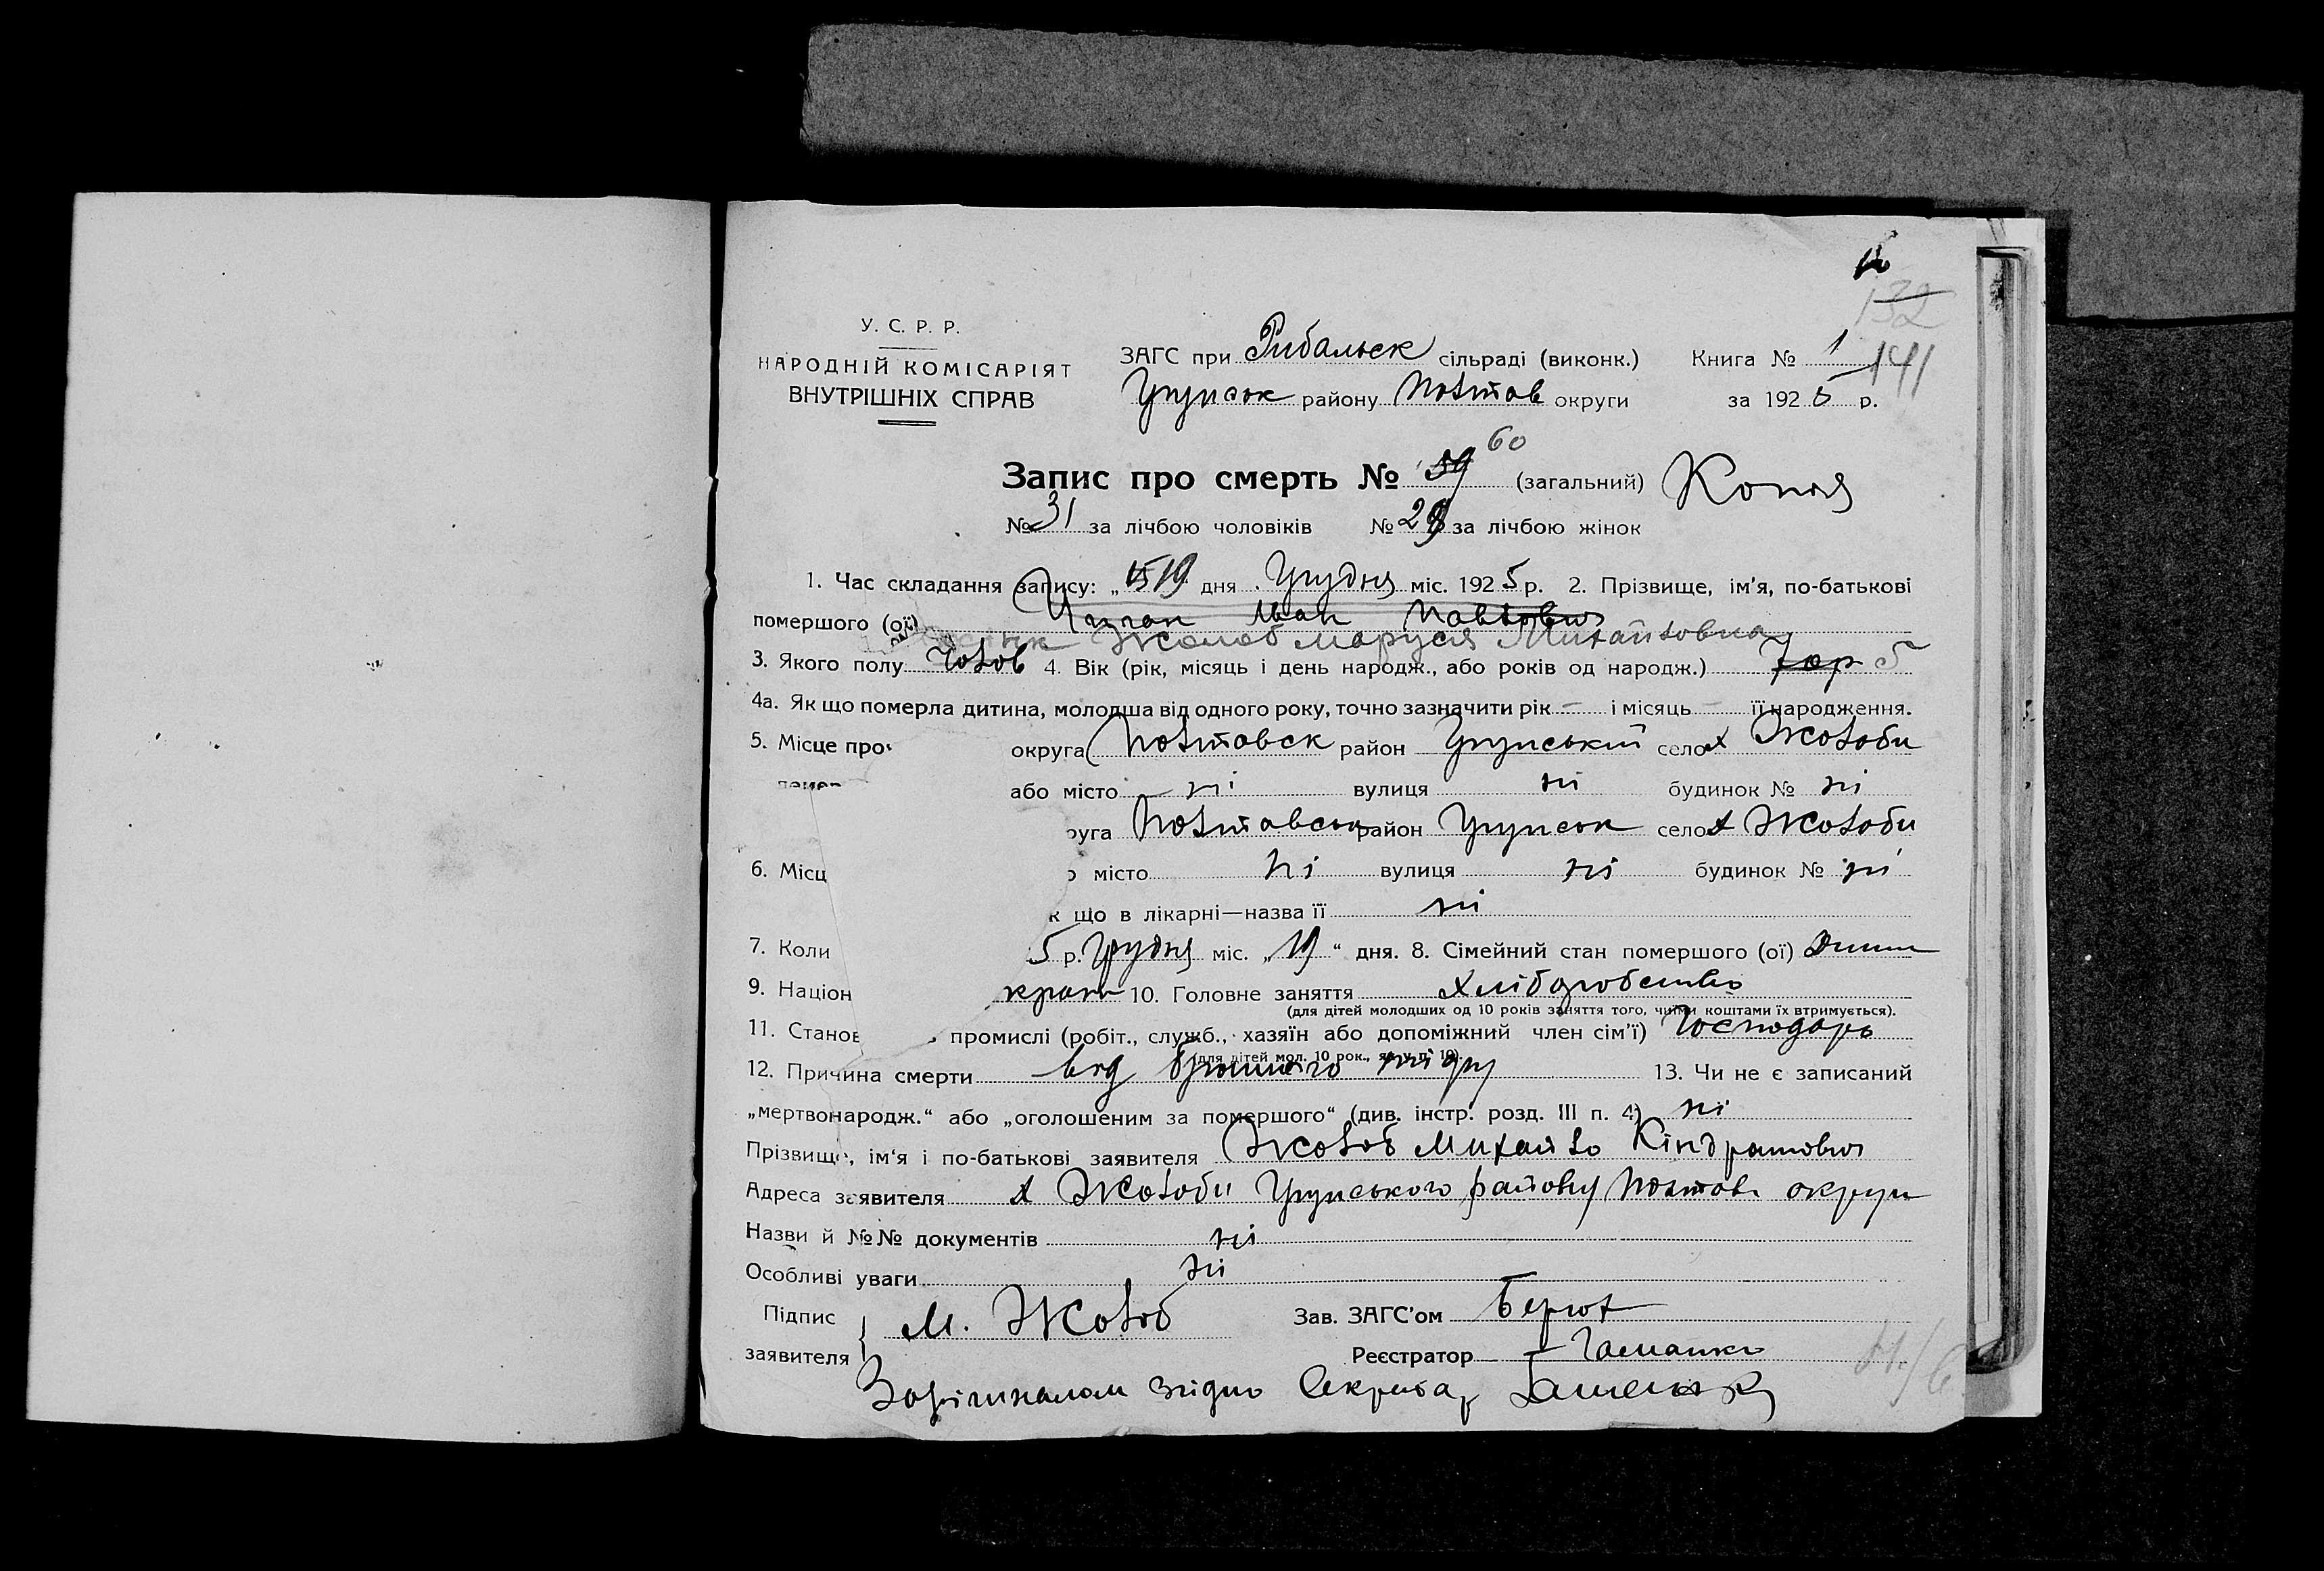 132
141
У. С. Р. Р.
НАРОДНІЙ КОМІСАРІЯТ
ВНУТРІШНІХ СПРАВ
ЗАГС при Рибальск сільраді (виконк.) Книга № 1
Грунськ району Полтав округи за 1925 р.
60
Запис про смерть № 59 (загальний) Копія
№ 31 за лічбою чоловіків № 29 за лічбою жінок
1. Час складання запису: „19 дня Грудня міс. 1925 р. 2. Прізвище, ім'я, по-батькові
помершого (ої) Іван Павлович
Жолоб Маруся Михайловна
3. Якого полу Чолов 4. Вік (рік, місяць і день народж., або років од народж.) 7 ор 5
4а. Як що померла дитина, молодша від одного року, точно зазначити рік – і місяць – її народження.
5. Місце про округа Полтавск район Грунський село х Жолоби
помер або місто ні вулиця ні будинок № ні
руга Полтавськ район Грунськ село х Жолоби
6. Місц о місто ні вулиця ні будинок № ні
к що в лікарні—назва її ні
7. Коли 5 р. Грудня міс. „19“ дня. 8. Сімейний стан помершого (ої)
9. Націон краін 10. Головне заняття хліборобство
(для дітей молодших од 10 років заняття того, чиїми коштами їх втримується).
11. Станов промислі (робіт., служб., хазяїн або допоміжний член сім'ї) Господарь
(для дітей мол. 10 рок., як у п. 10).
12. Причина смерти від 13. Чи не є записаний
„мертвонародж.“ або „оголошеним за помершого“ (див. інстр. розд. III п. 4) ні
Прізвище, ім'я і по-батькові заявителя Жолоб Михайло Кіндратович
Адреса заявителя х Жолоби Грунського району Полтав. округи
Назви й №№ документів ні
Особливі уваги ні
Підпис заявителя М. Жолоб Зав. ЗАГС'ом
Реєстратор
Зорігіналом згідно Секретар